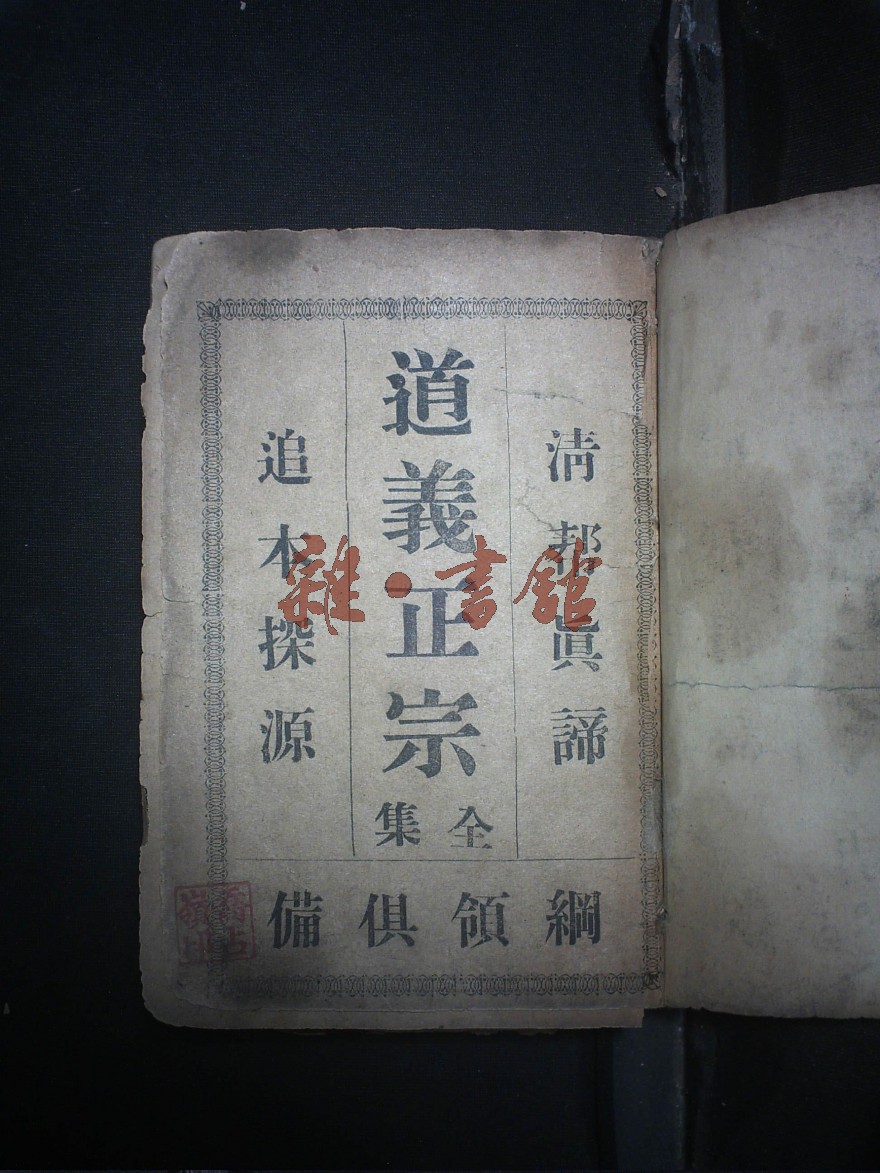 清邦眞諦
道義正宗
全集
追本探源
綱領俱備
雜·書館